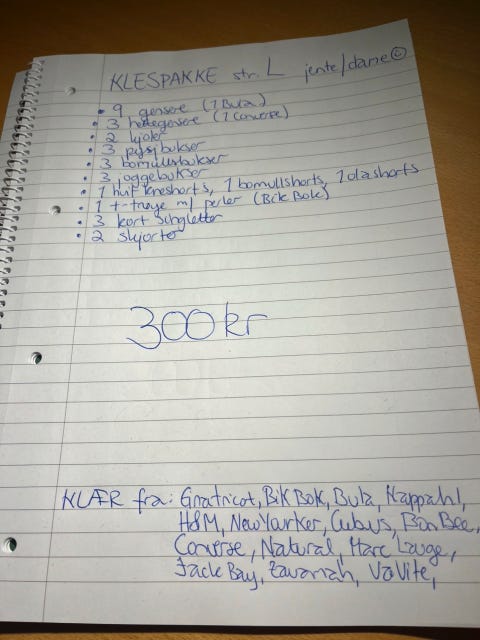 KLESPAKKE str. L jente/dame
• 9 gensere (1 Bula)
• 3 hettegensere (1 Converse)
• 2 kjoler
• 3 pysjbukser
• 3 bomullsbukser
• 3 joggebukser
• 1 hvit kneshorts, 1 bomullshorts, 1 olashorts
• 1 t-trøye m/ perler (Bik Bok)
• 3 kort singletter
• 2 skjorter
300 kr
KLÆR fra: Ginatricot, BiK BoK, Bula, Kappahl,
H&M, NewYorker, Cubus, Bon Bee,
Converse, Natural, Marc Lauge,
Jack Bay, Zavannah, VaVite,